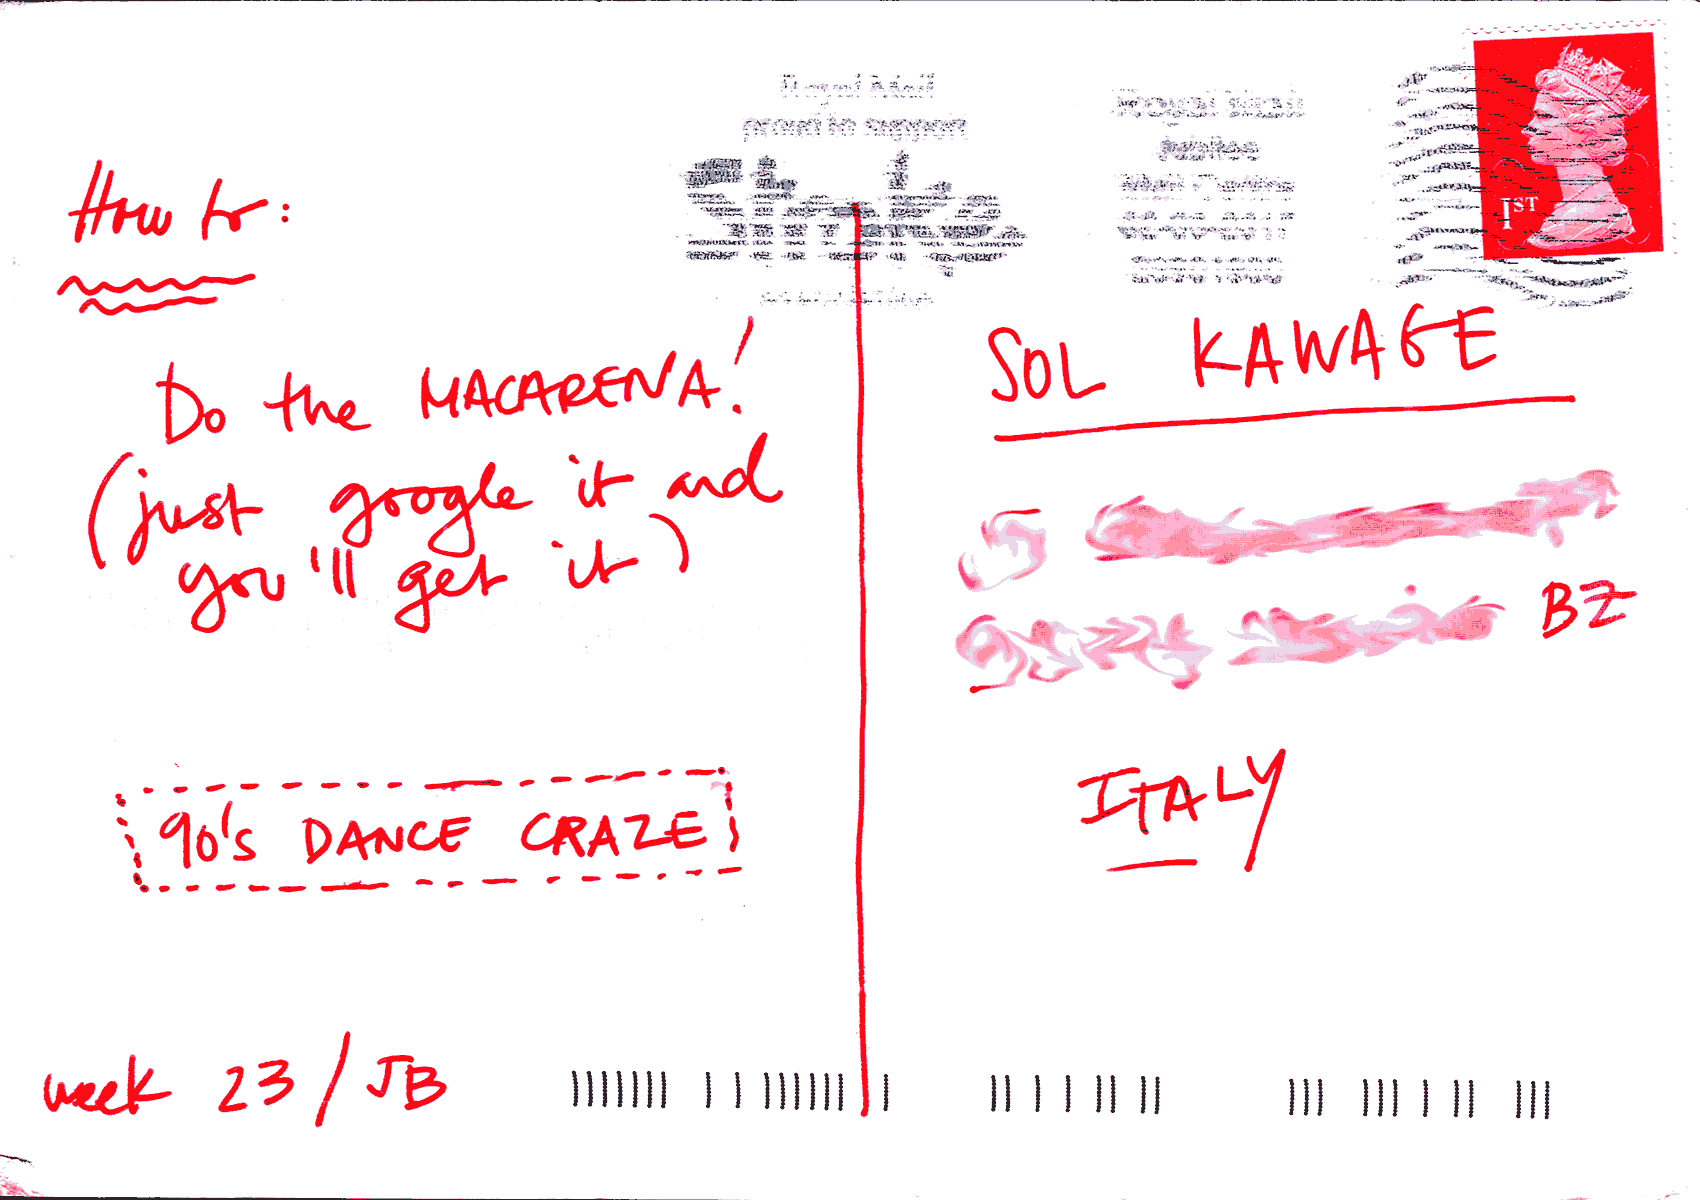 How to:
Do the MACARENA!
(just google it and
you'll get it)
90's DANCE CRAZE
week 23 / JB
Royal Mail
proud to support
Royal Mail
1ST
SOL KAWAGE
BZ
ITALY